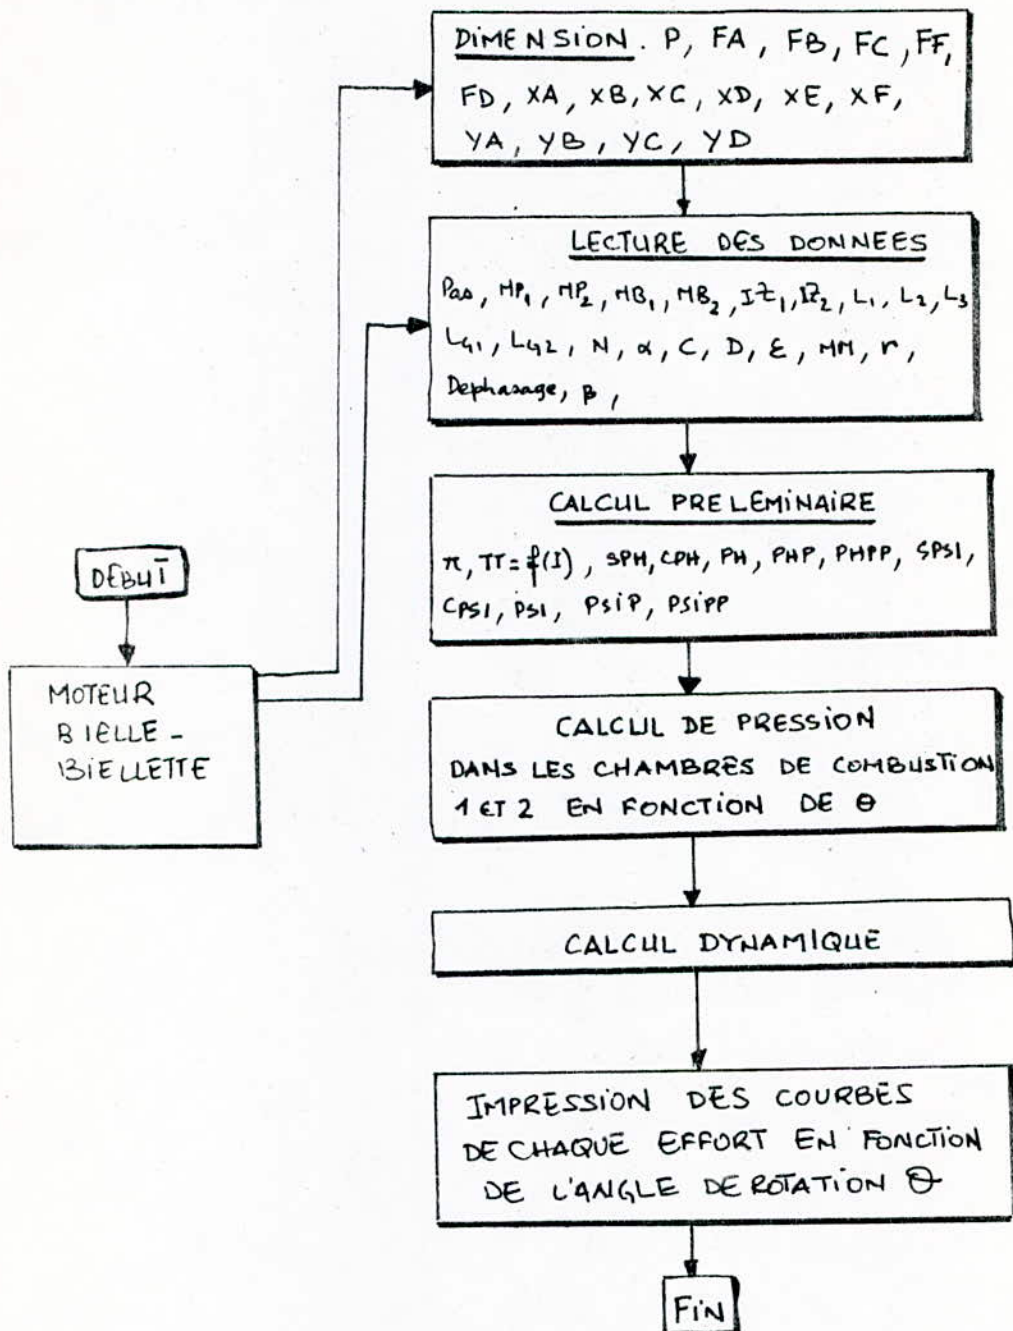 DÉBUT
MOTEUR
BIELLE-
BIELLETTE
DIMENSION. P, FA, FB, FC, FF,
FD, XA, XB, XC, XD, XE, XF,
YA, YB, YC, YD
LECTURE DES DONNEES
Pas, MP₁, MP₂, MB₁, MB₂, IZ₁, IZ₂, L₁, L₂, L₃
LG₁, LG₂, N, α, C, D, ε, MM, r,
Dephasage, β,
CALCUL PRELEMINAIRE
π, TT = f(I), SPH, CPH, PH, PHP, PHPP, SPSI,
CPSI, PSI, PSIP, PSIPP
CALCUL DE PRESSION
DANS LES CHAMBRES DE COMBUSTION
1 ET 2 EN FONCTION DE θ
CALCUL DYNAMIQUE
IMPRESSION DES COURBES
DE CHAQUE EFFORT EN FONCTION
DE L'ANGLE DE ROTATION θ
FIN